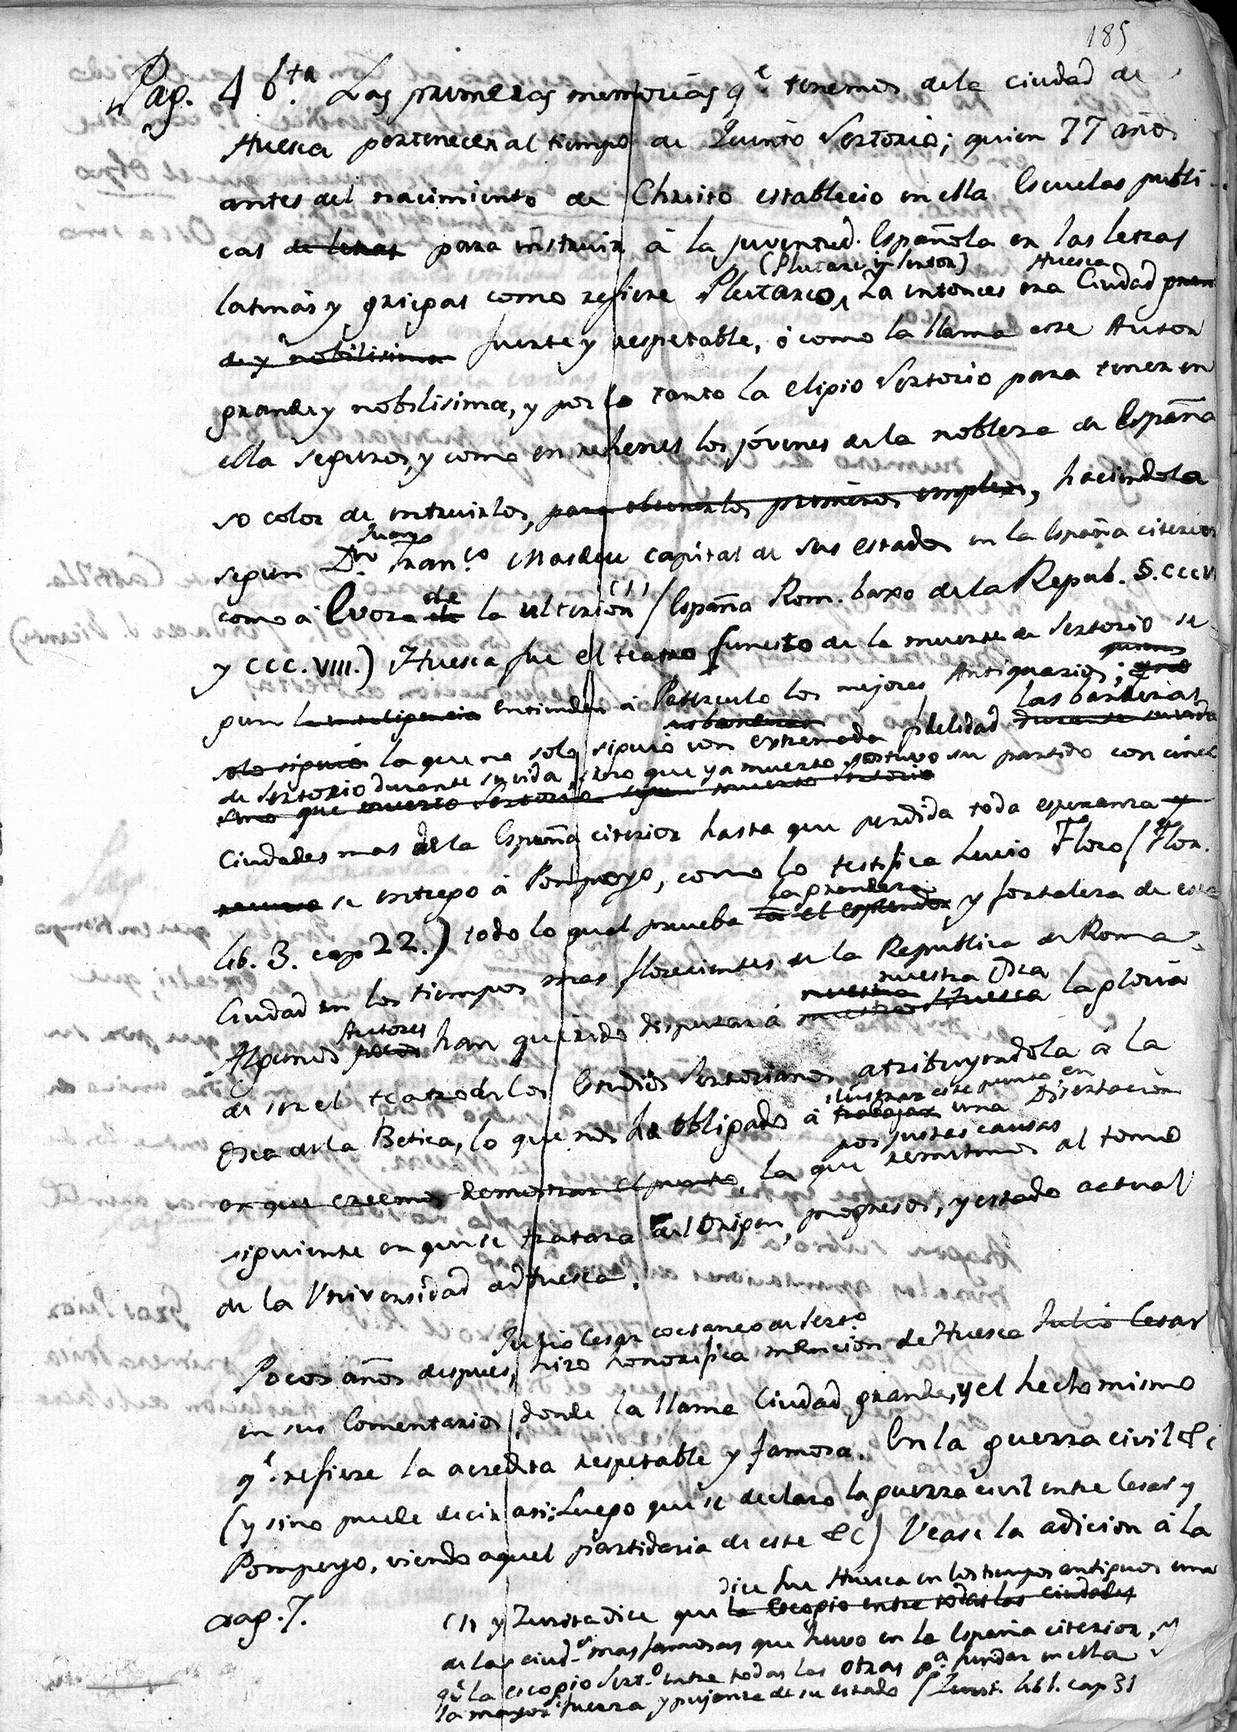 185
Pag. 4 bta. Las primeras memorias qe. tenemos de la ciudad de
Huesca pertenecen al tiempo de Quinto Sertorio; quien 77 años
antes del nacimiento de Christo establecio en ella Escuelas publi-
cas de letras para instruir à la juventud Española en las letras
(Plutarc. in Sertor) Huesca
latinas y griegas como refiere Plutarco, La entonces era Ciudad gran
de y nobilisima fuerte y respetable, ó como la llama este Autor
grande y nobilisima, y por lo tanto la eligio Sertorio para tener en
ella seguros, y como en rehenes los jóvenes de la nobleza de España
so color de intruirlos, para obtener los primeros empleos, haciendola
Juan
segun Dn. Franco. Masdeu capital de sus estados en la España citerior
como à Evora de la ulterior (1) (España Rom. baxo de la Repub. §. CCCVI
y CCC.VIII.) Huesca fue el teatro funesto de la muerte de Sertorio se
gun la inteligencia entienden à Paterculo los mejores Antiquarios;
las banderas
solo siguió la que no solo siguió con extremada fidelidad durante su vida
de Sertorio durante su vida, sino que ya muerto sostuvo su partido con cinco
sino que muerto Sertorio segun muerto Sertorio
Ciudades mas de la España citerior hasta que perdida toda esperanza y
se entregó à Pompeyo, como lo testifica Lucio Floro (Flor.
la grandeza
lib. 3. cap 22.) todo lo qual prueba el esplendor y fortaleza de esta
Ciudad en los tiempos mas florecientes de la Republica de Roma.
nuestra Osca
Autores
Algunos pocos han querido disputar à nuestra Huesca la gloria
de ser el teatro de los Estudios Sertorianos atribuyendola à la
ilustrar este punto en
Osca de la Betica, lo que nos ha obligado à trabajar una Disertacion
por justas causas
en que creemos demostrar el punto, la que remitimos al tomo
siguiente en que se tratara del Origen, progresos, y estado actual
de la Universidad de Huesca.
Julio Cesar coetaneo de Serto.
Pocos años despues, hizo honorifica mencion de Huesca Julio Cesar
en sus Comentarios, donde la llama Ciudad grande, y el hecho mismo
qe. refiere la acredita respetable y famosa. En la guerra civil &c
(y sino puede decir asi: Luego que se declaro la guerra civil entre Cesar y
Pompeyo, viendo aquel partidaria de este &c) Vease la adicion à la
pag. 7.
dice fue Huesca en los tiempos antiguos una
(1) y Zurita dice que la escogio entre todas las ciudades
de las ciudes. mas famosas que huvo en la España citerior, y
qe. la escogio Serto. entre todas las otras pa. fundar en ella
la mayor fuerza, y pujanza de su estado (Zurit. lib 1. cap 31